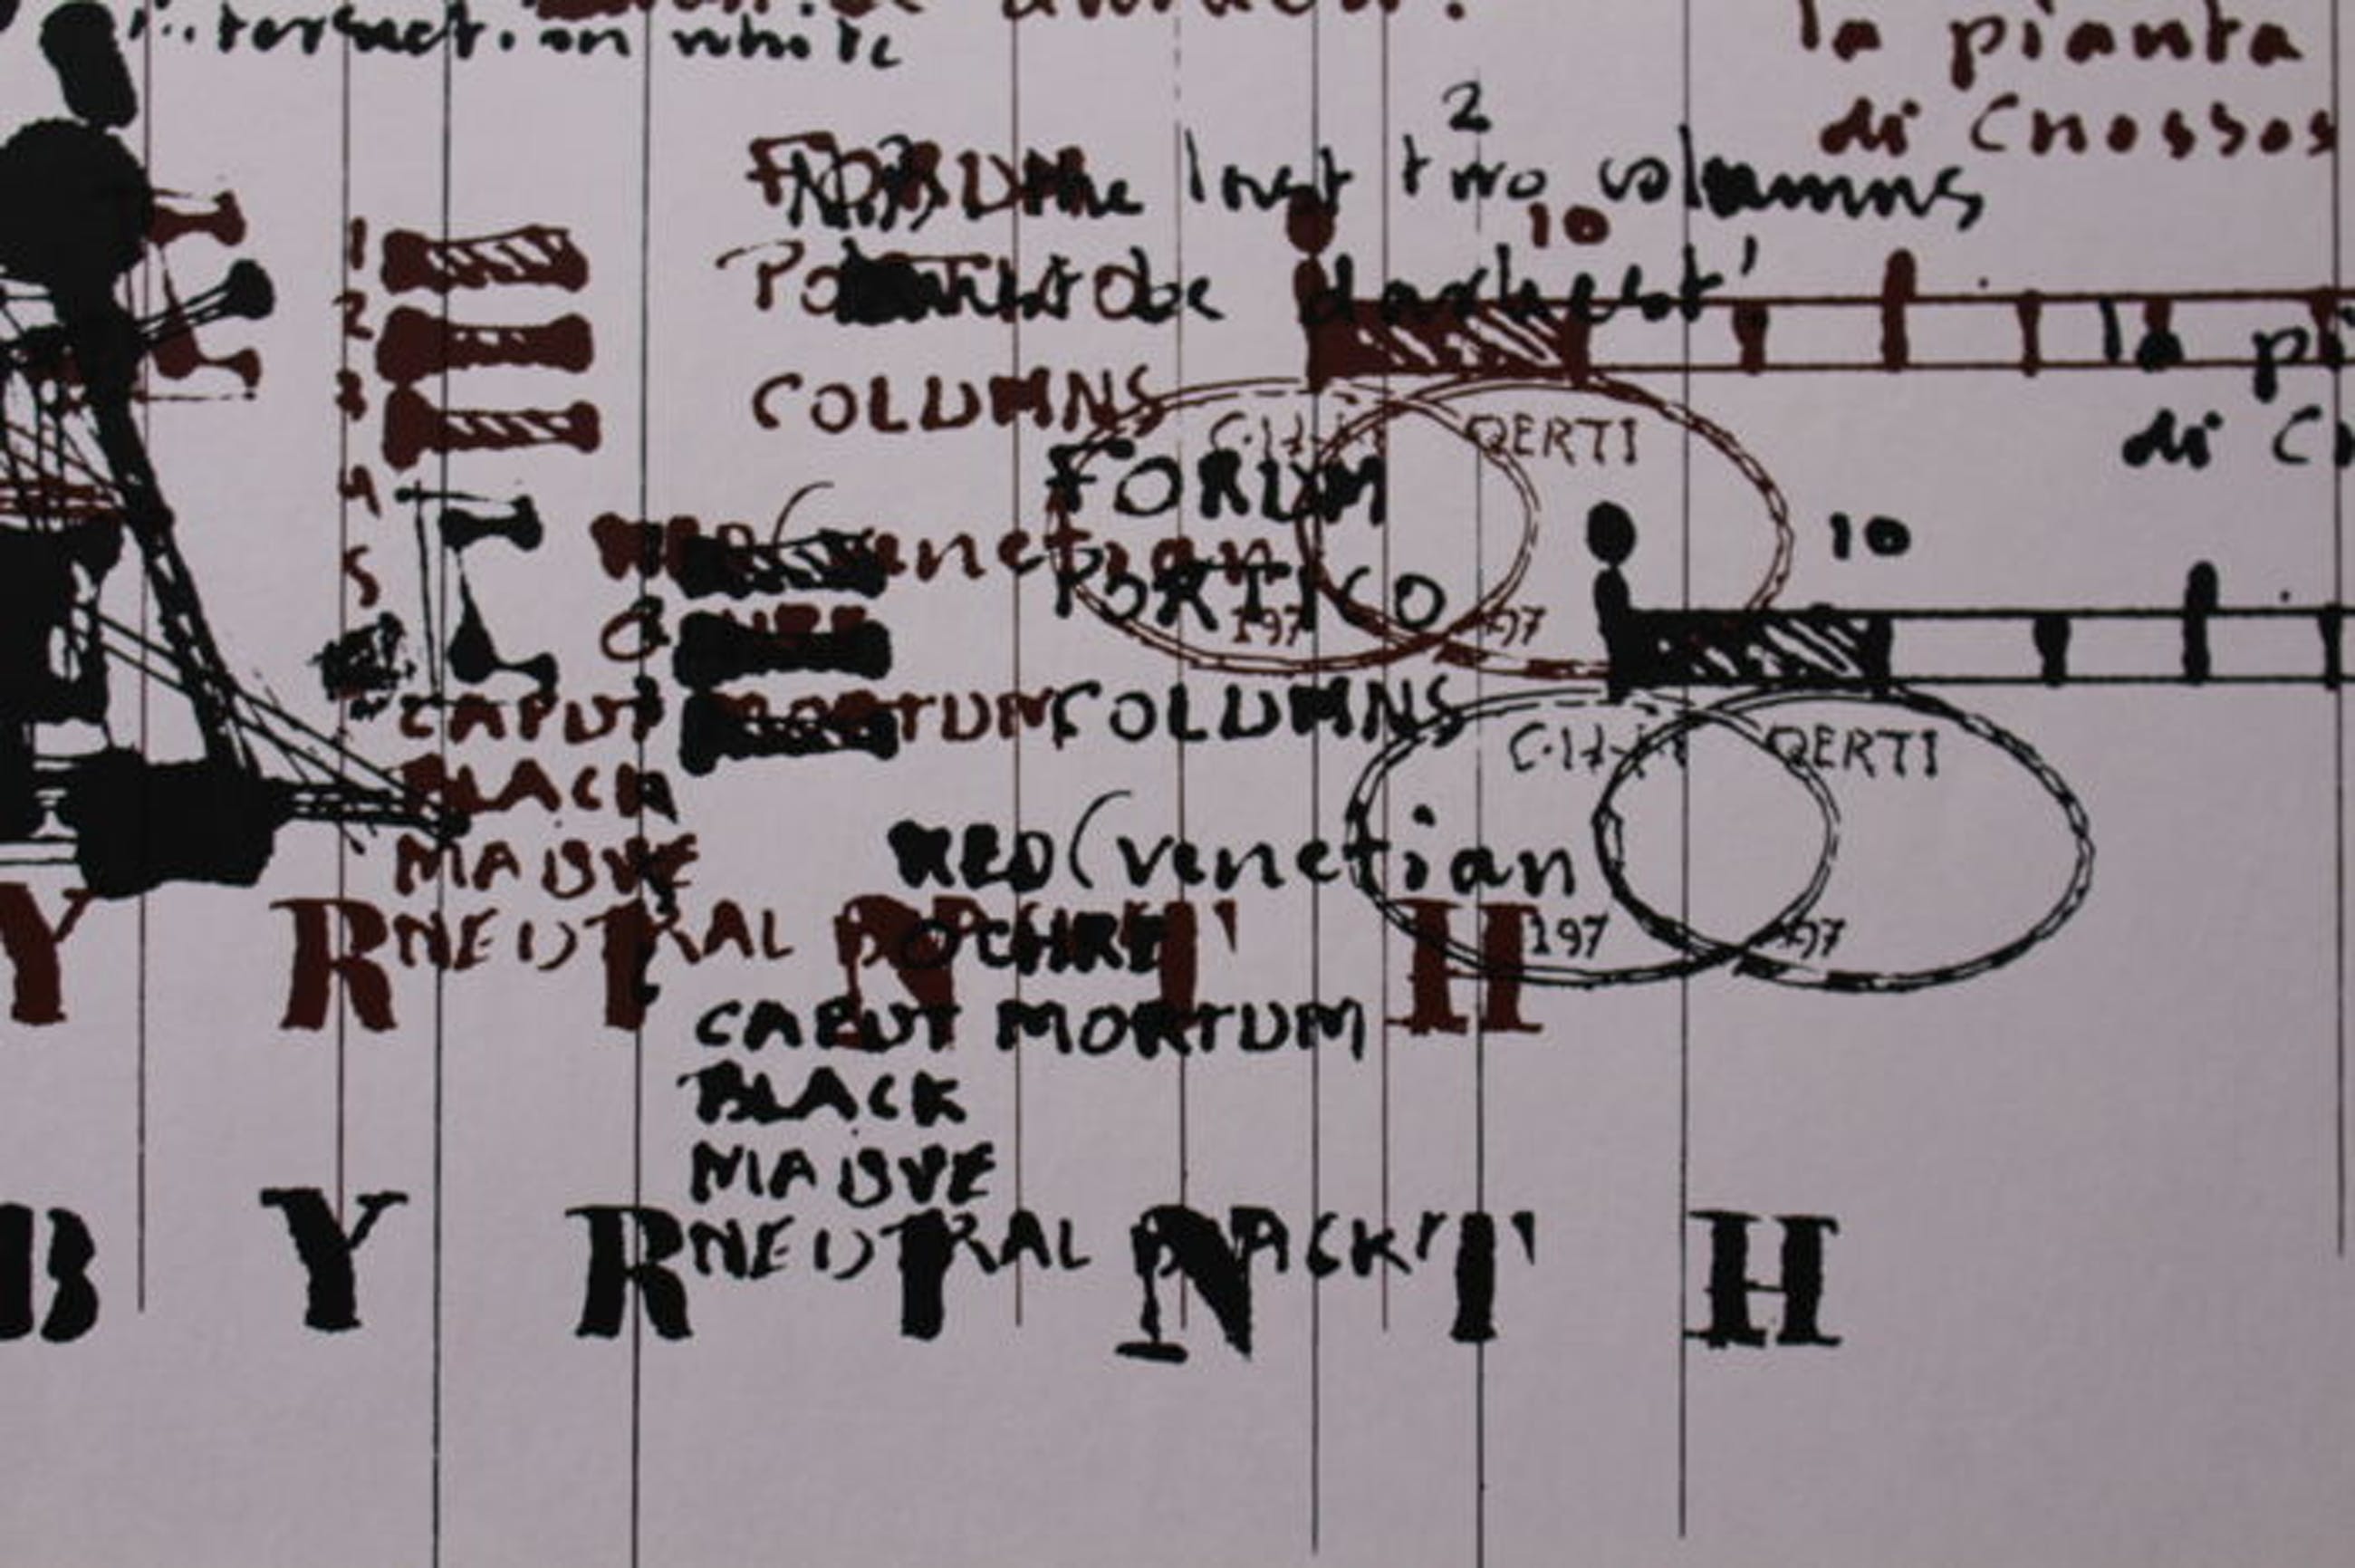 intersection white
la pianta
di Cnossos
2
the last two columns
10
FORUM
PORTICO
be darkest'
1
2
3
4
5
COLUMNS
QERTI
FORUM
PORTICO
COLUMNS
10
la pi
di Cn
venetian
197
197
CAPUT MORTUM
BLACK
MAUVE
NEUTRAL
QERTI
RED (venetian
OCHRE
197
197
Y R I N T H
CAPUT MORTUM
BLACK
MAUVE
NEUTRAL BLACK
B Y R I N T H